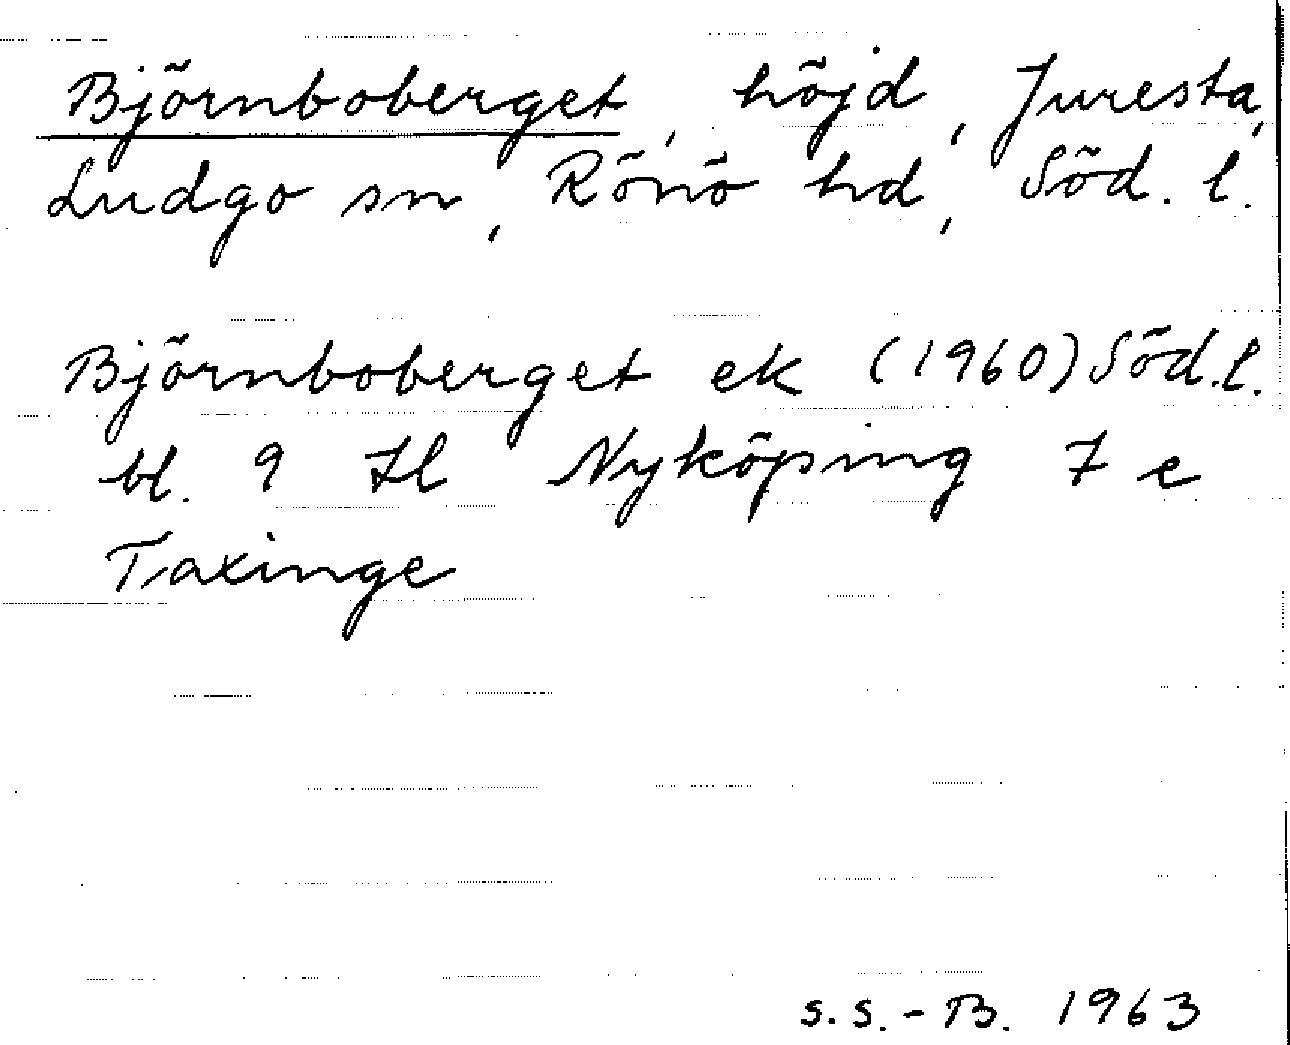 Björnboberget, höjd, Juresta,
Ludgo sn, Rönö hd, Söd. l.
Björnboberget ek (1960) Söd. l.
bl. 9 H Nyköping 7 e
Taxinge
S.S.-B. 1963